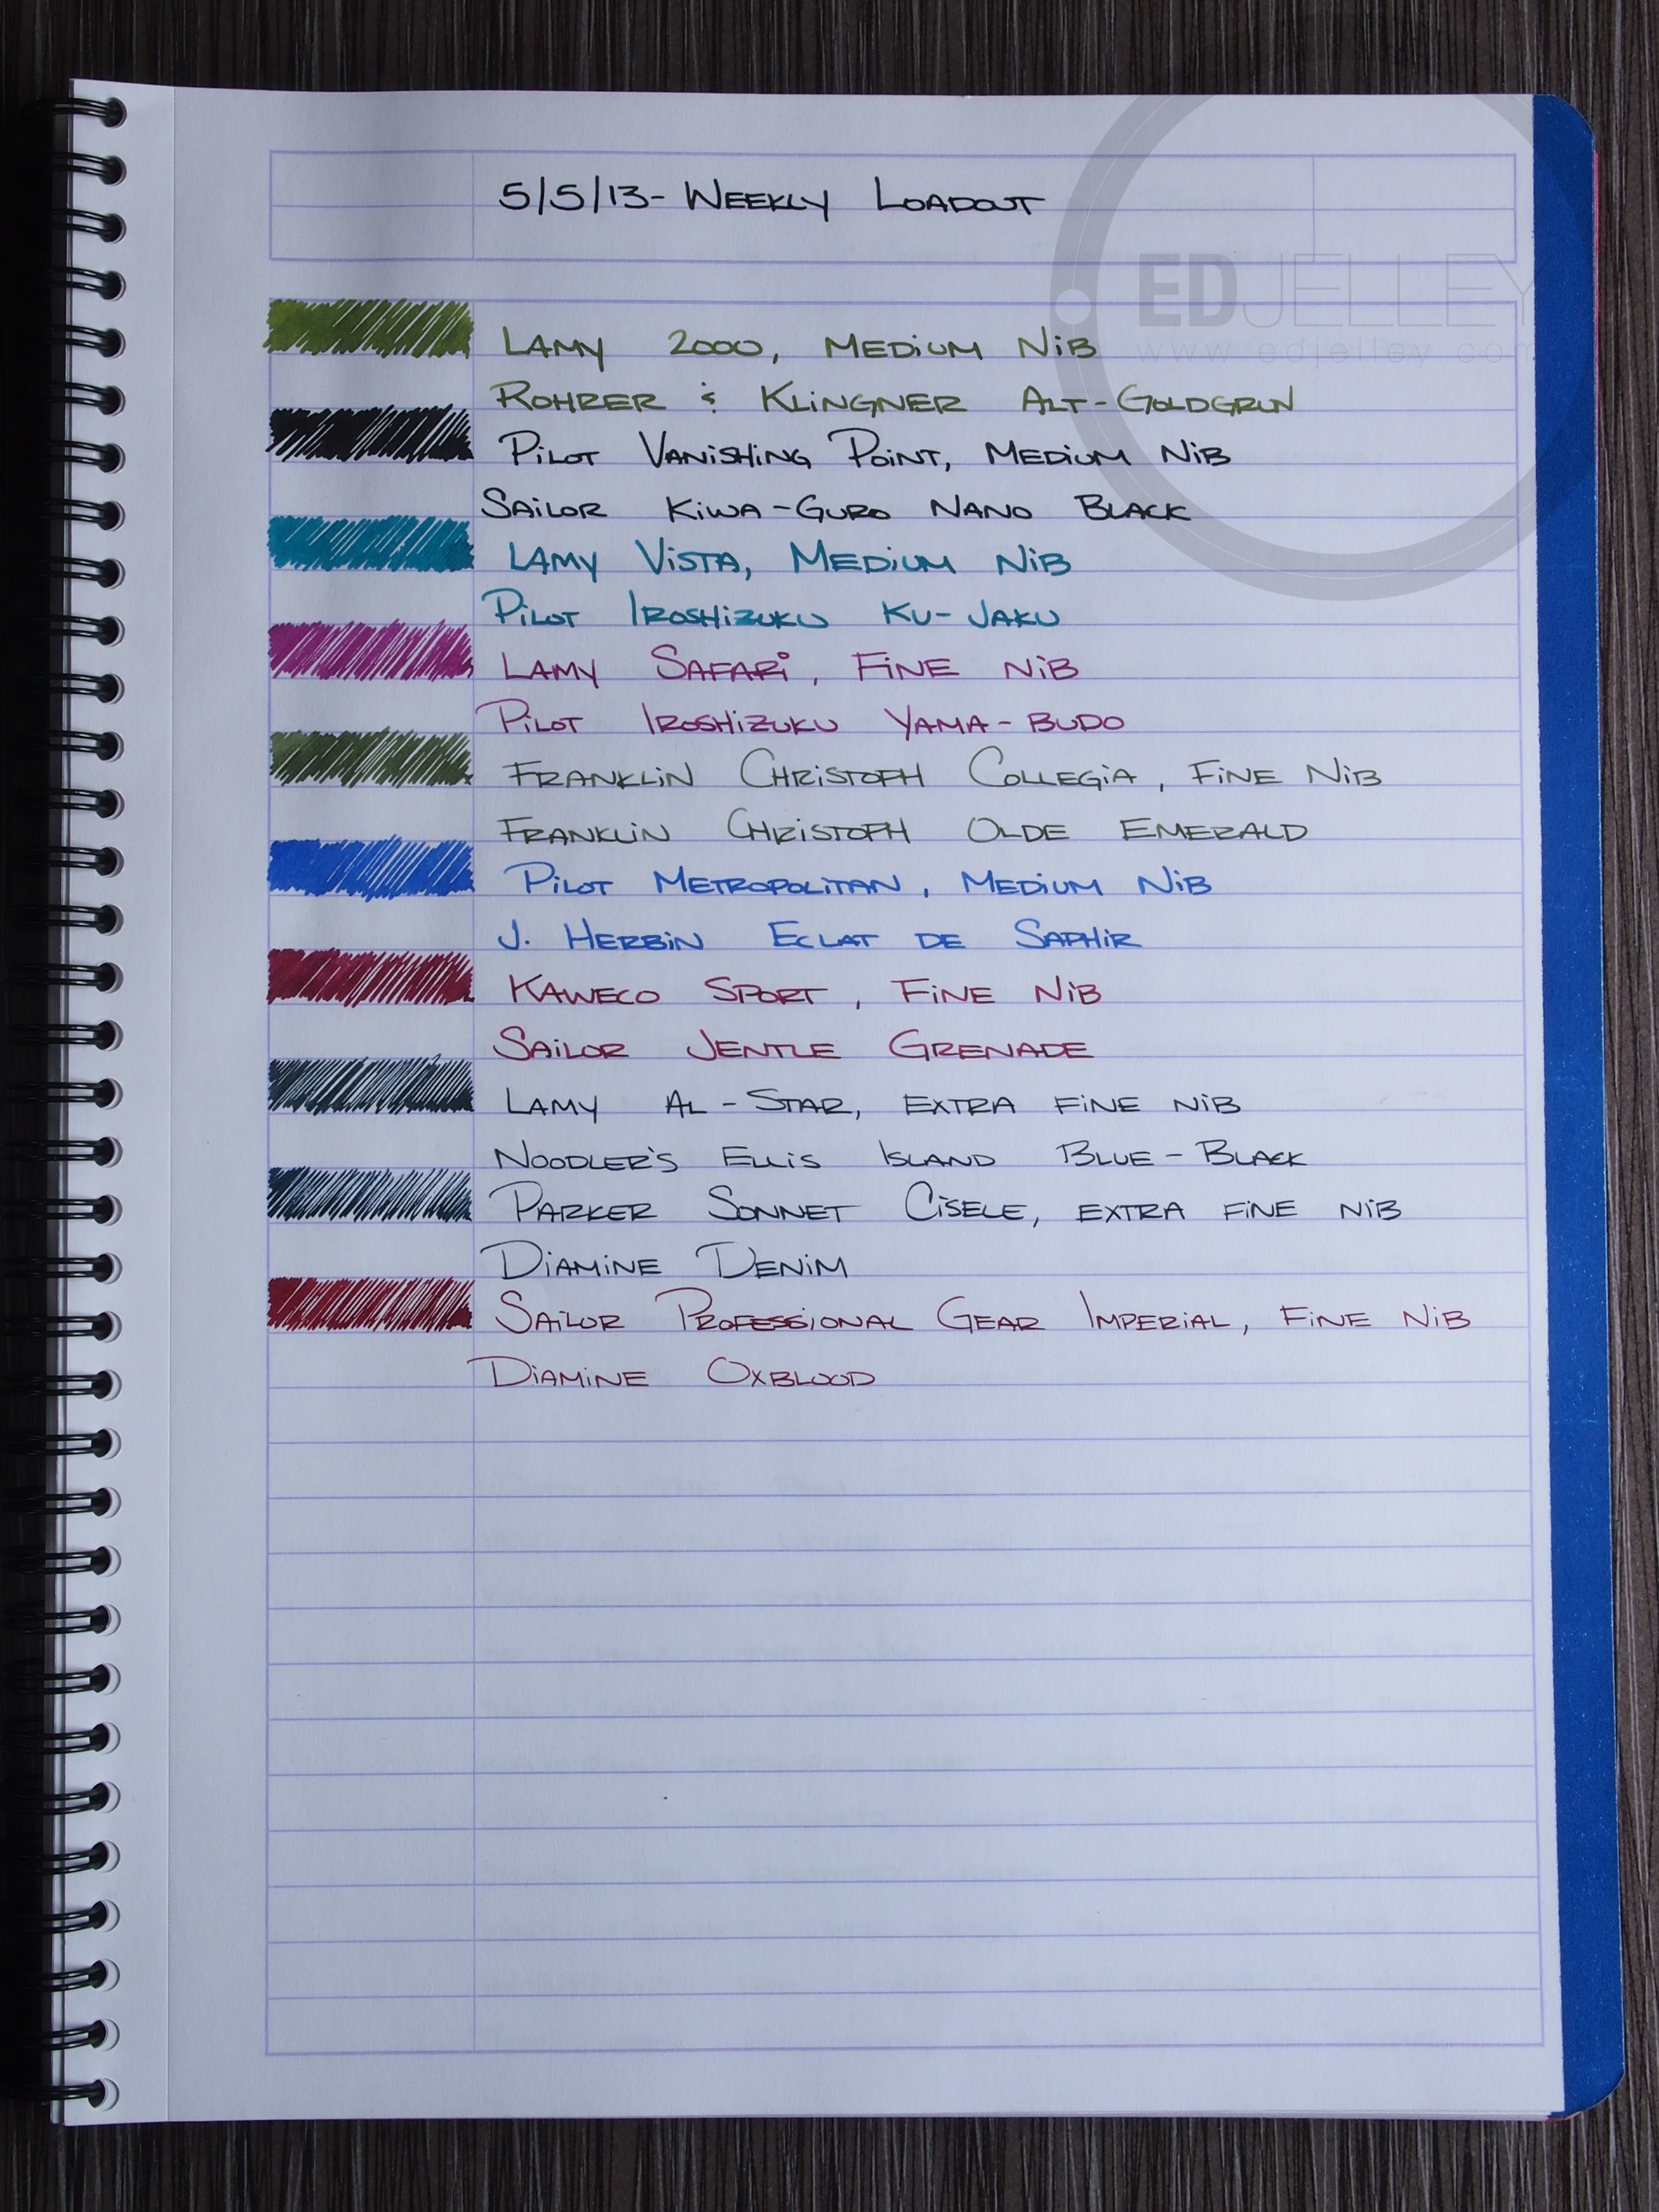 5/5/13- WEEKLY LOADOUT
EDJELLEY
www.edjelley.com
LAMY 2000, MEDIUM NIB
ROHRER & KLINGNER ALT-GOLDGRUN
PILOT VANISHING POINT, MEDIUM NIB
SAILOR KIWA-GURO NANO BLACK
LAMY VISTA, MEDIUM NIB
PILOT IROSHIZUKU KU-JAKU
LAMY SAFARI, FINE NIB
PILOT IROSHIZUKU YAMA-BUDO
FRANKLIN CHRISTOPH COLLEGIA, FINE NIB
FRANKLIN CHRISTOPH OLDE EMERALD
PILOT METROPOLITAN, MEDIUM NIB
J. HERBIN ECLAT DE SAPHIR
KAWECO SPORT, FINE NIB
SAILOR JENTLE GRENADE
LAMY AL-STAR, EXTRA FINE NIB
NOODLER'S ELLIS ISLAND BLUE-BLACK
PARKER SONNET CISELE, EXTRA FINE NIB
DIAMINE DENIM
SAILOR PROFESSIONAL GEAR IMPERIAL, FINE NIB
DIAMINE OXBLOOD